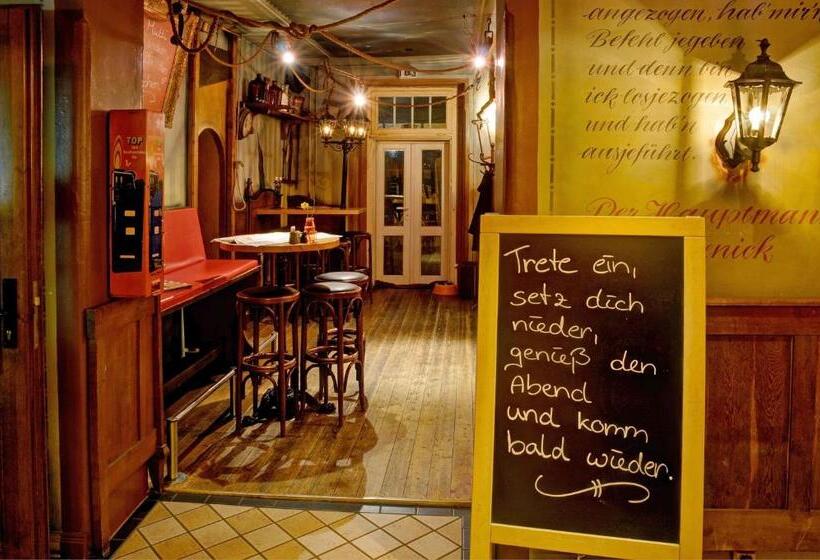 angezogen, hab'mir'n
Befehl jegeben
und denn bin
ick losjezogen
und hab'n
ausjeführt.
Der Hauptmann
TOP
Trete ein,
setz dich
nieder,
genieß den
Abend
und komm
bald wieder.